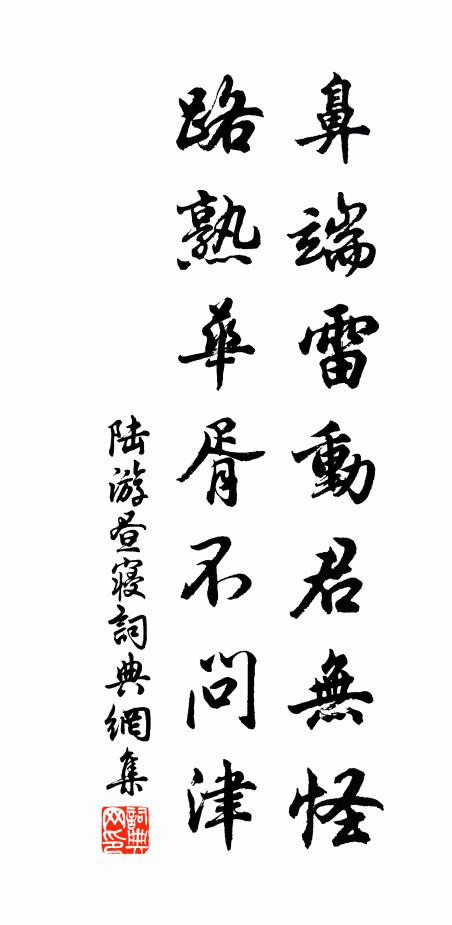 鼻端雷動君無怪
路熟華胥不問津
陆游昼寝詞典網集
詞典网印